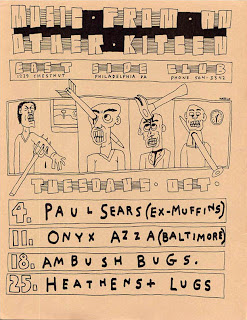 MUSIC FROM AN
OTHER KITCHEN
EAST SIDE CLUB
1229 CHESTNUT PHILADELPHIA PA PHONE 564-3342
TUESDAYS OCT.
4. PAUL SEARS (EX-MUFFINS)
11. ONYX AZZA (BALTIMORE)
18. AMBUSH BUGS.
25. HEATHENS + LUGS